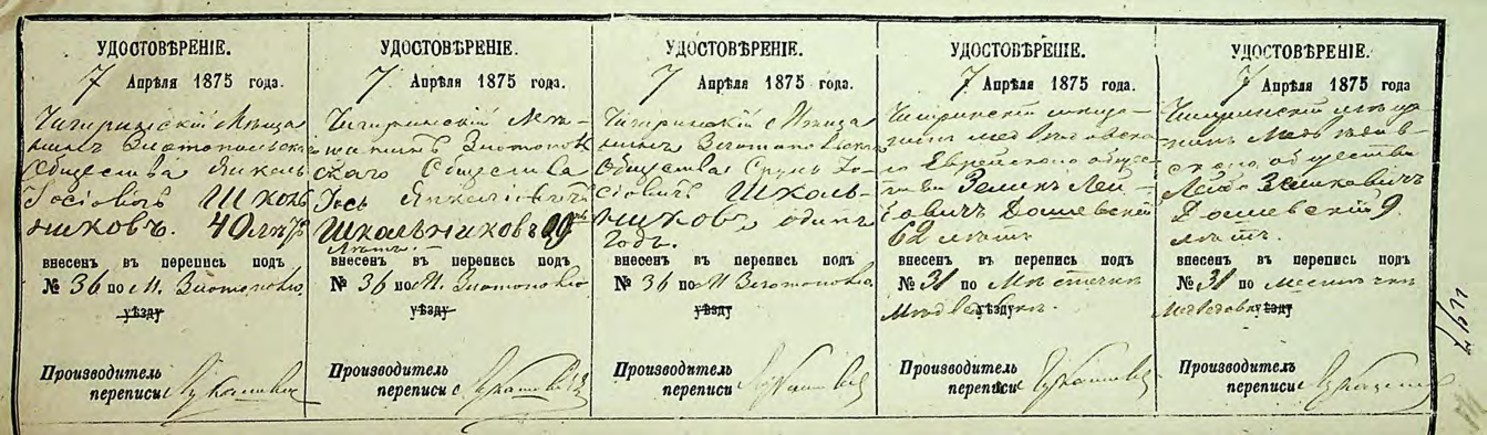 УДОСТОВѢРЕНІЕ.
7 Апрѣля 1875 года.
Чигиринскій Мѣща
нинъ Златопольска
Общества Янкель
Іосіовичъ Школь
никовъ. 40 лѣтъ
внесенъ въ перепись подъ
№ 36 по М. Златополю
уѣзду
Производитель
переписи
УДОСТОВѢРЕНІЕ.
7 Апрѣля 1875 года.
Чигиринскій Мѣ-
щанинъ Златополь
скаго Общества
Іось Янкеліовичъ
Школьниковъ
лѣтъ. -
внесенъ въ перепись подъ
№ 36 по М. Златополю
уѣзду
Производитель
переписи
УДОСТОВѢРЕНІЕ.
7 Апрѣля 1875 года.
Чигиринскій Мѣща
нинъ Златопольска
Общества Сруль Іо-
сіовичъ Школь-
никовъ, одинъ
годъ.
внесенъ въ перепись подъ
№ 36 по М Златополю
уѣзду
Производитель
переписи
УДОСТОВѢРЕНІЕ.
7 Апрѣля 1875 года.
Чигринскій мѣща-
нинъ медвѣдовска
го Еврейскаго общес-
тва Зелик Лей-
бовичъ Дашевскій
62 лѣтъ
внесенъ въ перепись подъ
№ 31 по Мѣстечку
Медвѣдовкѣ уѣзду
Производитель
переписи
УДОСТОВѢРЕНІЕ.
7 Апрѣля 1875 года
Чигринскій мѣща-
нинъ Медвѣдов-
скаго общества
Лейба Зеликовичъ
Дашевскій 9.
лѣтъ.
внесенъ въ перепись подъ
№ 31 по местечку
Медведовкѣ уѣзду
Производитель
переписи